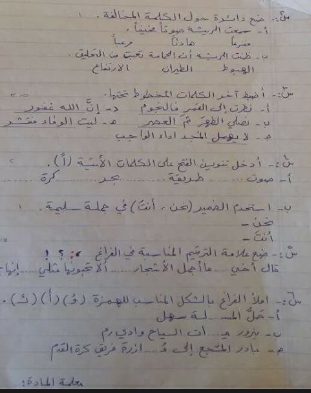 س١:- ضع دائرة حول الكلمة المخالفة.
أ- سمعت الريشة صوتاً مخيفاً.
مفزعاً هادئاً مرعباً
ب- ظنت الريشة أن الحمامة تعبت من التحليق.
الهبوط الطيران الارتفاع
س٢:- أضبط آخر الكلمات المخطوط تحتها.
أ- نظرت إلى القمر فالنجوم د- إنَّ الله غفور
ب- نصلي الظهرَ ثمَّ العصر هـ- ليت الوفاء منتشر
جـ- لا يهمل المجد أداء الواجب
س٣:- أدخل تنوين الفتح على الكلمات الآتية (اً).
أ- صوت ...... طريقة ...... بحر ...... كرة ......
ب- استخدم الضمير (نحن، أنتَ) في جملة سليمة.
- نحنُ
- أنتَ
س٤:- ضع علامة الترقيم المناسبة في الفراغ ، : ؟ !
قال أخي ...... ما أجمل الأشجار ...... ألا تحبونها مثلي ...... إنها
س٥:- املأ الفراغ بالشكل المناسب للهمزة (ؤ) (أ) (ئ).
أ- حلُّ المسـ لـة سهل
ب- يزور عـ ات السياح وادي رم
جـ- بادر المشجع إلى مُـ ازرة فريق كرة القدم
معلمة المادة: